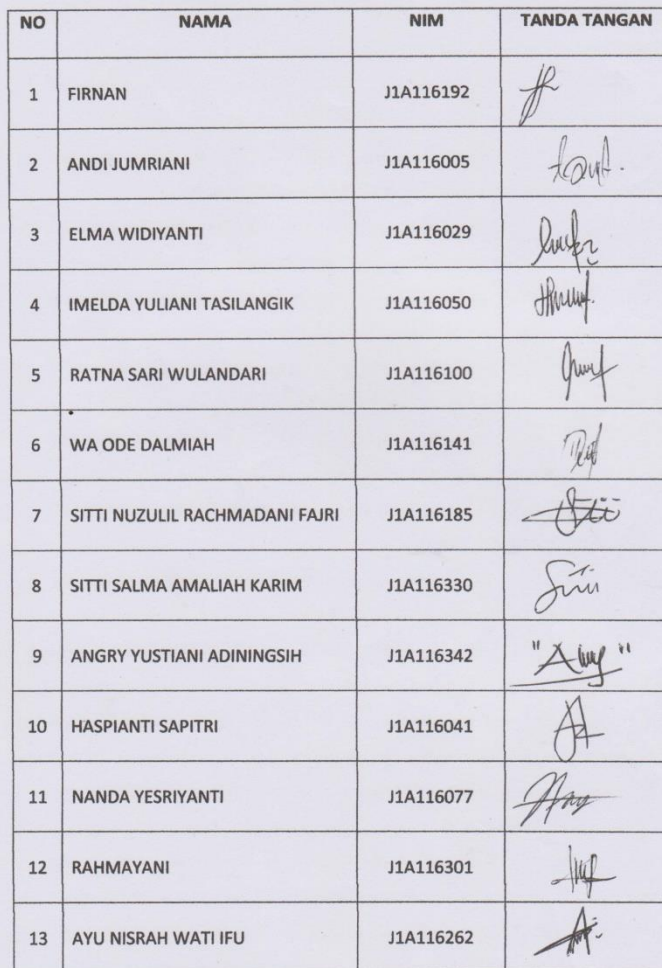 NO NAMA NIM TANDA TANGAN
1 FIRNAN J1A116192
2 ANDI JUMRIANI J1A116005
3 ELMA WIDIYANTI J1A116029
4 IMELDA YULIANI TASILANGIK J1A116050
5 RATNA SARI WULANDARI J1A116100
6 WA ODE DALMIAH J1A116141
7 SITTI NUZULIL RACHMADANI FAJRI J1A116185
8 SITTI SALMA AMALIAH KARIM J1A116330
9 ANGRY YUSTIANI ADININGSIH J1A116342
10 HASPIANTI SAPITRI J1A116041
11 NANDA YESRIYANTI J1A116077
12 RAHMAYANI J1A116301
13 AYU NISRAH WATI IFU J1A116262